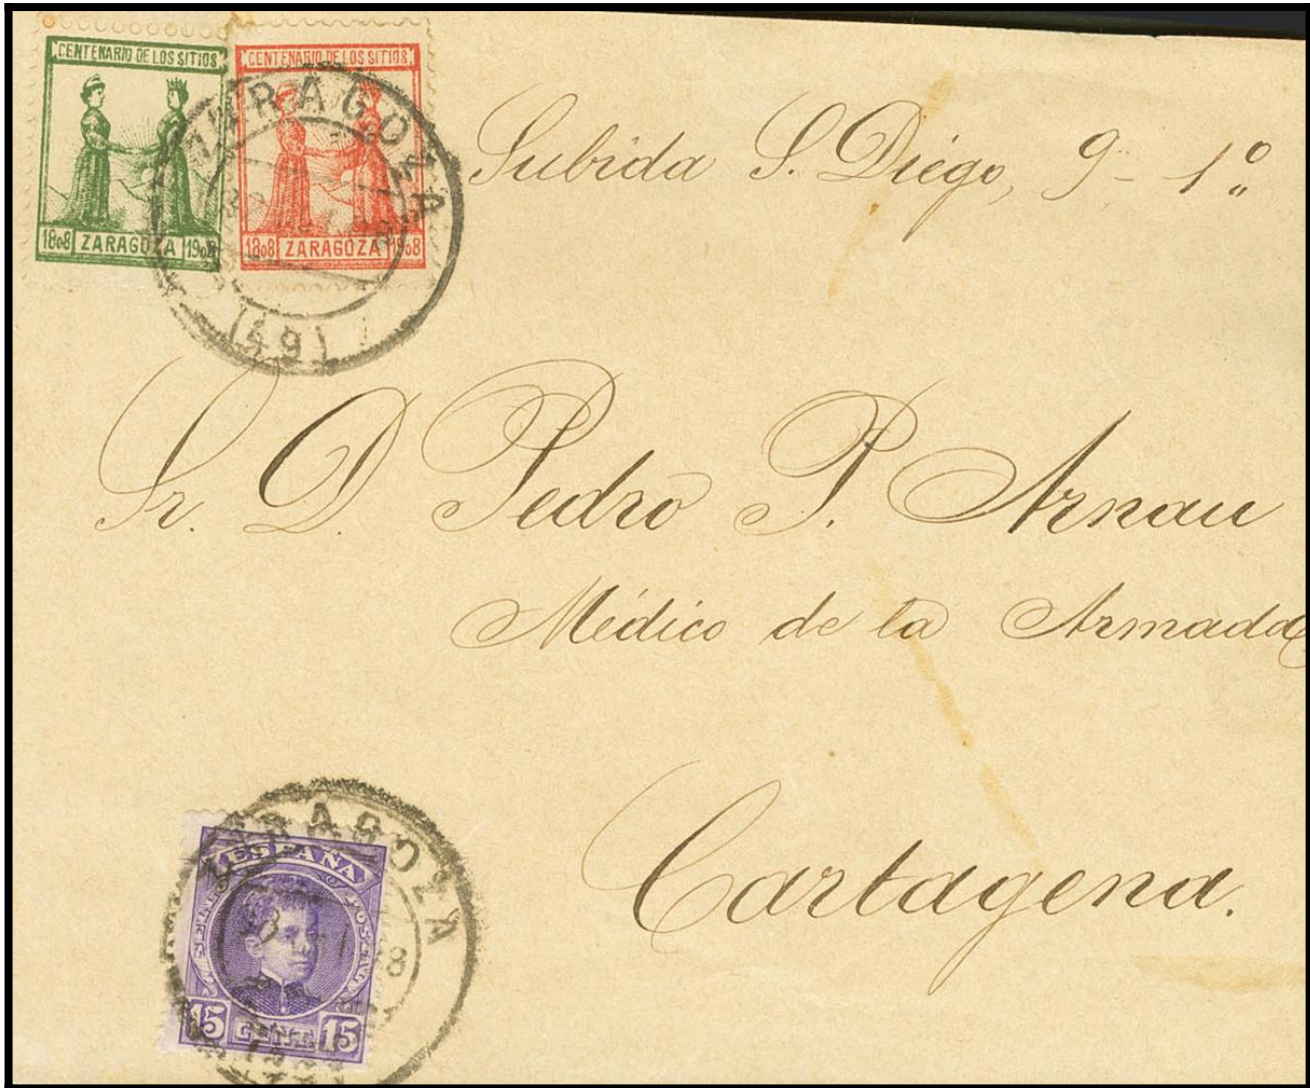 CENTENARIO DE LOS SITIOS
1808 ZARAGOZA 1908
CENTENARIO DE LOS SITIOS
1808 ZARAGOZA 1908
ZARAGOZA
(49)
Subida S. Diego, 9 - 1º
Sr. D. Pedro P. Arnau
Médico de la Armada
Cartagena.
ZARAGOZA
ESPAÑA
15 CENT 15